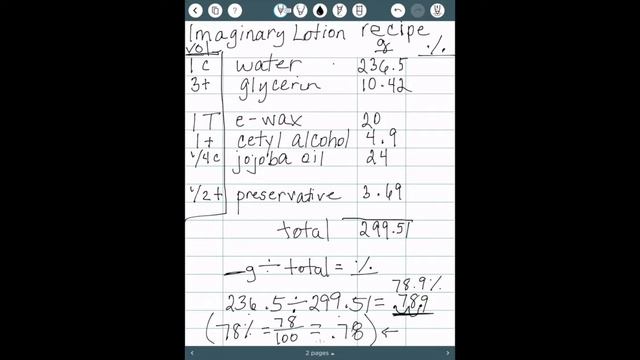 Imaginary Lotion recipe
vol g %
1 c water 236.5
3t glycerin 10.42
1 T e-wax 20
1 t cetyl alcohol 4.9
1/4 c jojoba oil 24
1/2 t preservative 3.69
total 299.51
_g ÷ total = %
78.9%
236.5 ÷ 299.51 = .789
(78% = 78/100 = .78) ←
2 pages